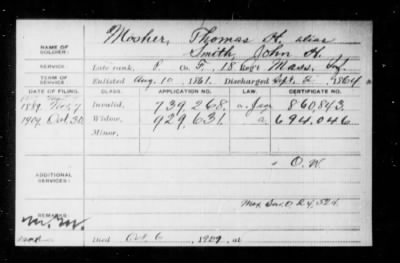 Mosher, Thomas H. alias
NAME OF SOLDIER: Smith, John H.
SERVICE: Late rank, P. Co. F, 18 Reg't Mass. Inf.
TERM OF SERVICE: Enlisted Aug. 10, 1861. Discharged Sept. 2, 1864
DATE OF FILING. CLASS. APPLICATION NO. LAW. CERTIFICATE NO.
1889 7 Invalid, 739,268 860,843
1909 Oct. 30 Widow, 929,631 a. 694,046
Minor,
O.W.
ADDITIONAL SERVICES:
REMARKS:
Died Oct. 6, 1909, at